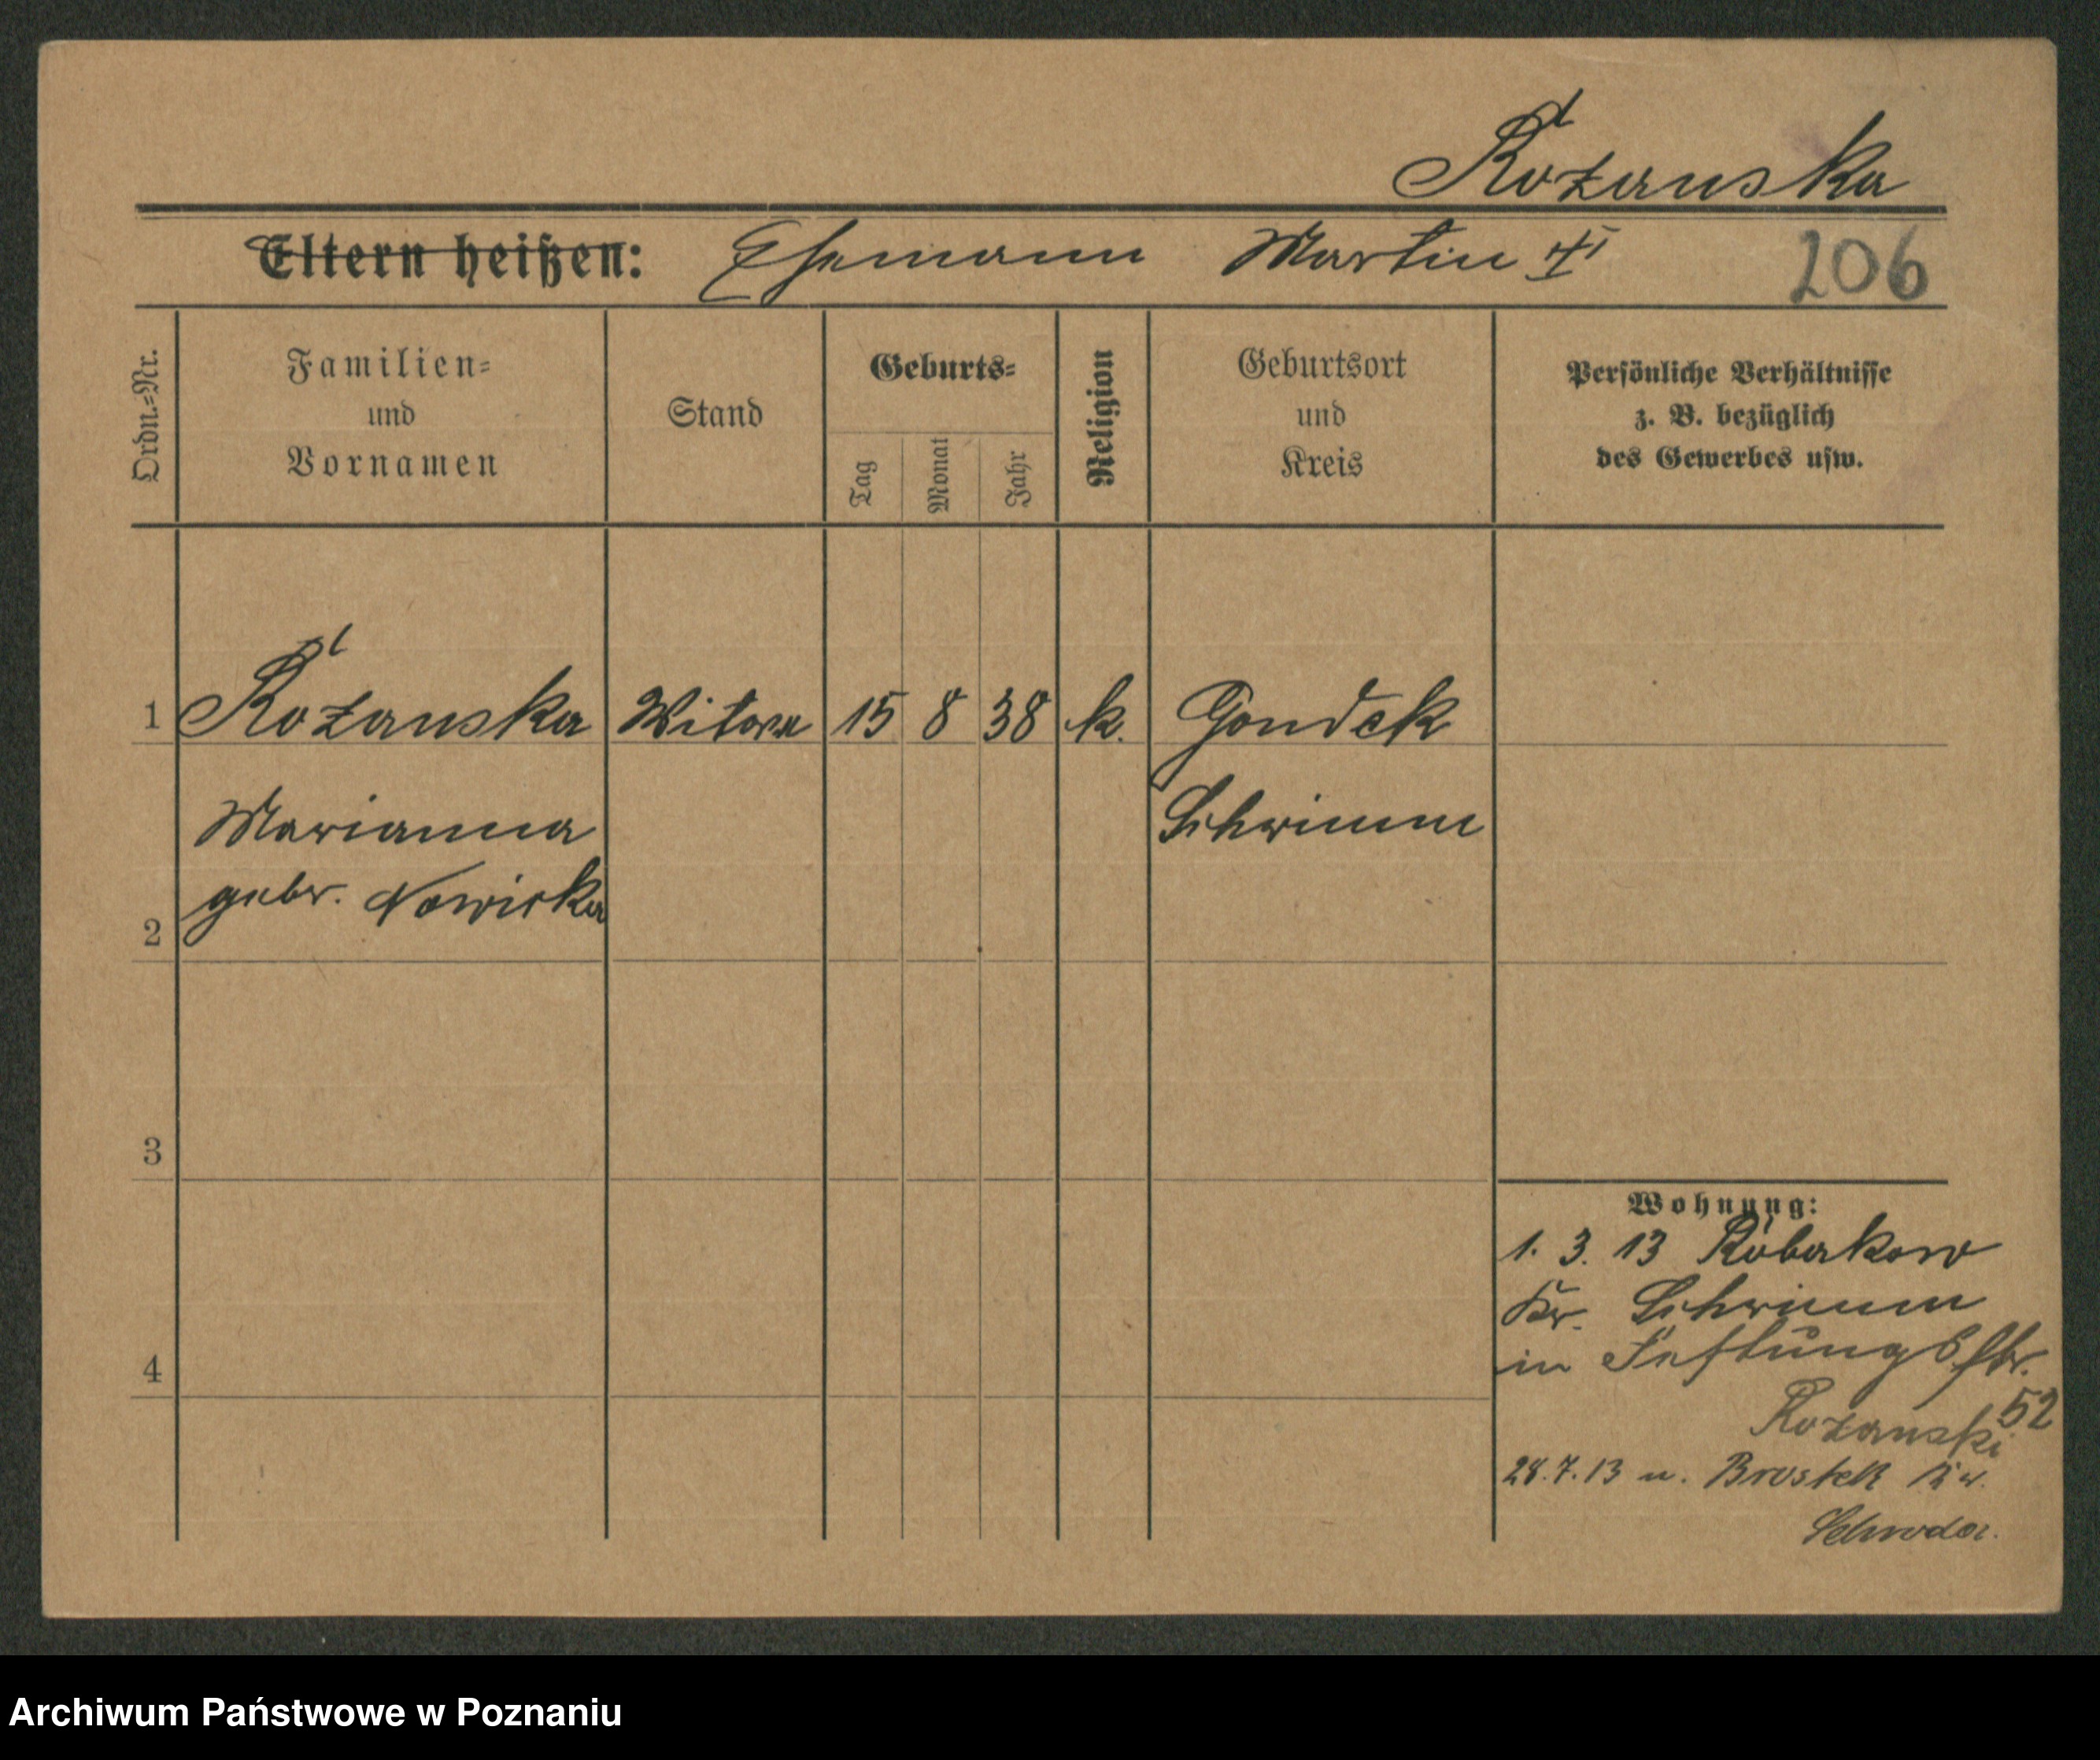 Rożanska
Eltern heißen: Ehemann Martin
206
Ordn.=Nr.
Familien=
und
Vornamen
Stand
Geburts=
Tag
Monat
Jahr
Religion
Geburtsort
und
Kreis
Persönliche Verhältnisse
z. B. bezüglich
des Gewerbes usw.
1 Rożanska Witwe 15 8 38 k. Gondek
Marianna Schrimm
gebor. Nowicka
2
3
4
Wohnung:
1. 3. 13
Kr. Schrimm
in Festungsstr.
52
Rożanski
28.7.13 n. Brostek Kr.
Schroda.
Archiwum Państwowe w Poznaniu